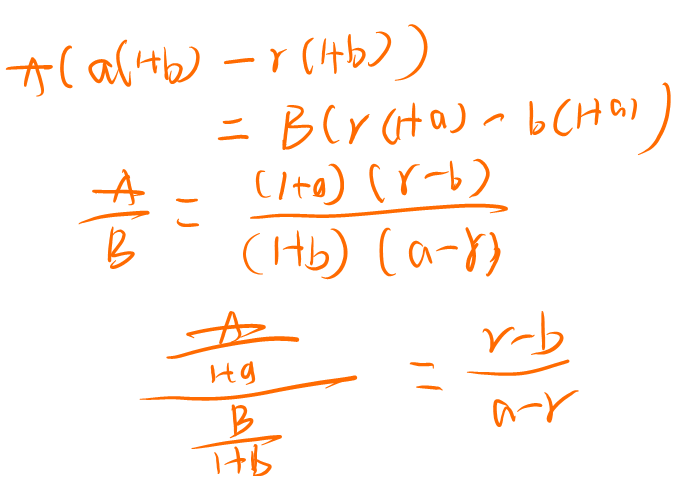 A(a(1+b) - r(1+b))
= B(r(1+a) - b(1+a))
A/B = (1+a)(r-b)/(1+b)(a-r)
(A/(1+a))/(B/(1+b)) = (r-b)/(a-r)